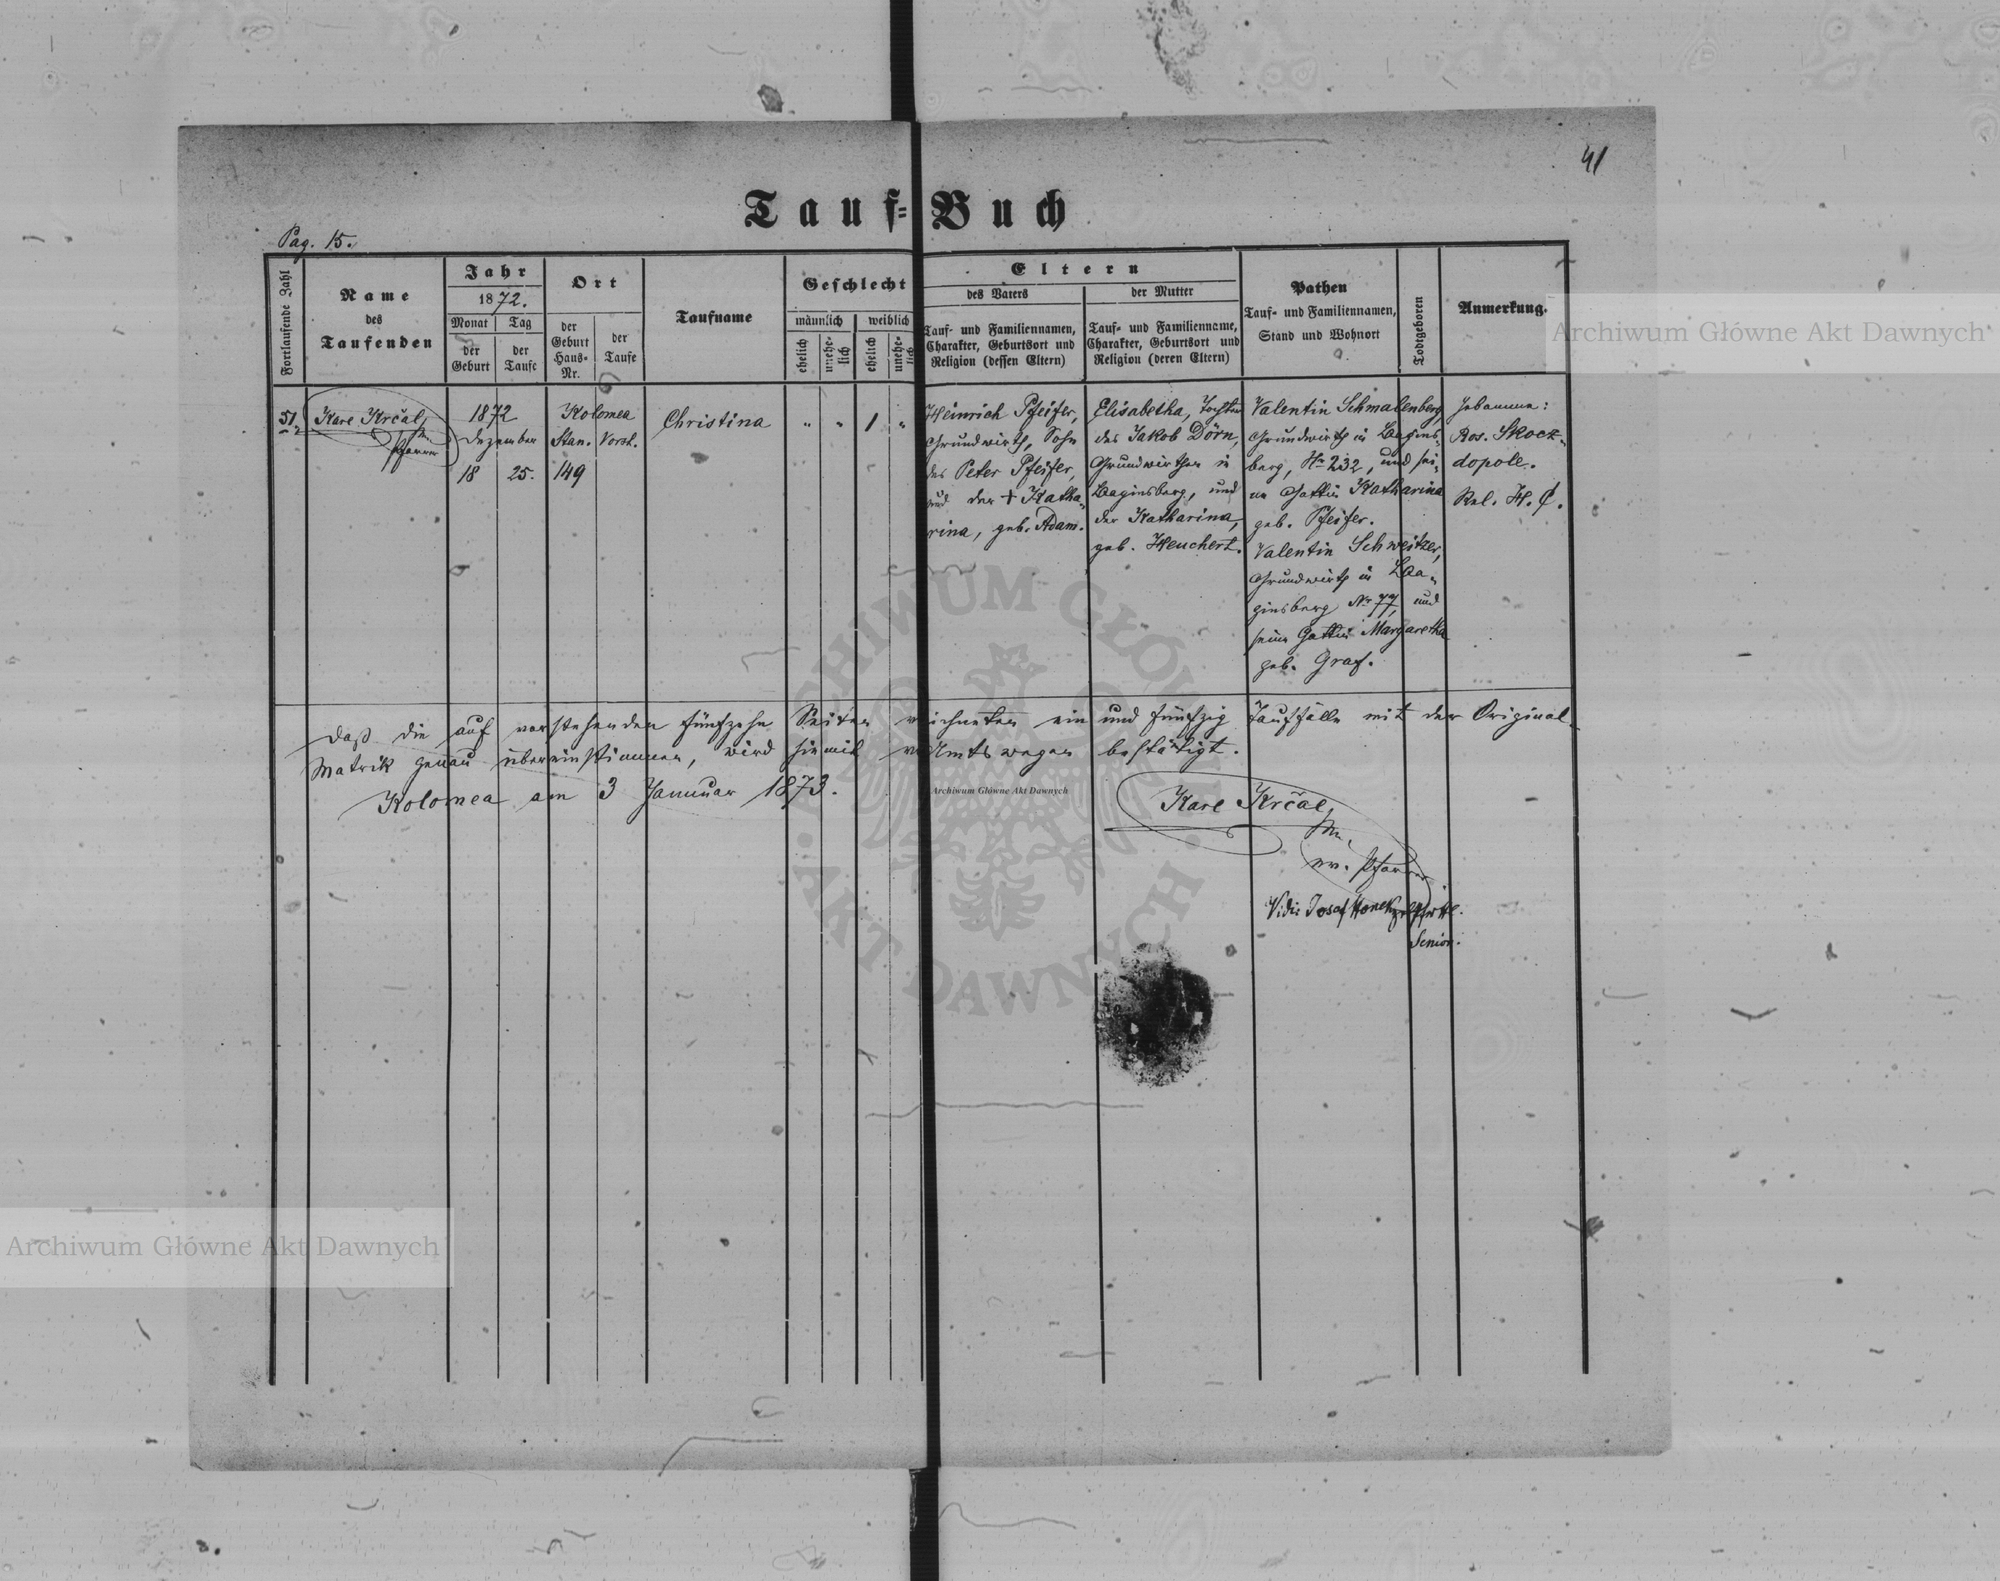 41
Tauf-Buch
Pag. 15.
Fortlaufende Zahl
Name
des
Taufenden
Jahr
1872.
Monat
Tag
der
Geburt
der
Taufe
Ort
der
Geburt
Haus-
Nr.
der
Taufe
Taufname
Geschlecht
männlich
weiblich
ehelich
unehe-
lich
ehelich
unehe-
lich
Eltern
des Vaters
der Mutter
Tauf- und Familiennamen,
Charakter, Geburtsort und
Religion (dessen Eltern)
Tauf- und Familienname,
Charakter, Geburtsort und
Religion (deren Eltern)
Pathen
Tauf- und Familiennamen,
Stand und Wohnort
Todtgeboren
Anmerkung.
51
Karl Krčal,
Pfarrer
1872
Dezember
18
25.
Kolomea
Stan. Vorst.
149
Christina
" " 1 "
Heinrich Pfeifer,
Grundwirth, Sohn
des Peter Pfeifer,
und der + Katha-
rina, geb. Adam.
Elisabetha, Tochter
des Jakob Dörn,
Grundwirthes in
Baginsberg, und
der Katharina,
geb. Heuchert.
Valentin Schmalenberg,
Grundwirth in Bagins-
berg, Nr 232, und sei-
ne Gattin Katharina
geb. Pfeifer.
Valentin Schweitzer,
Grundwirth in Ba-
ginsberg Nr 77, und
seine Gattin Margaretha
geb. Graf.
Hebamme:
Ros. Skocz-
dopole.
Rel. H. C.
Daß die auf vorstehenden fünfzehn Seiten ein und fünfzig Tauffälle mit der Original-
Matrik genau übereinstimmen, wird hiemit Amts wegen bestätigt.
Kolomea am 3 Januar 1873.
Karl Krčal,
ev. Pfarrer
Vidi: Josef
Senior.
Archiwum Główne Akt Dawnych
Archiwum Główne Akt Dawnych
Archiwum Główne Akt Dawnych
ARCHIWUM GŁÓWNE AKT DAWNYCH